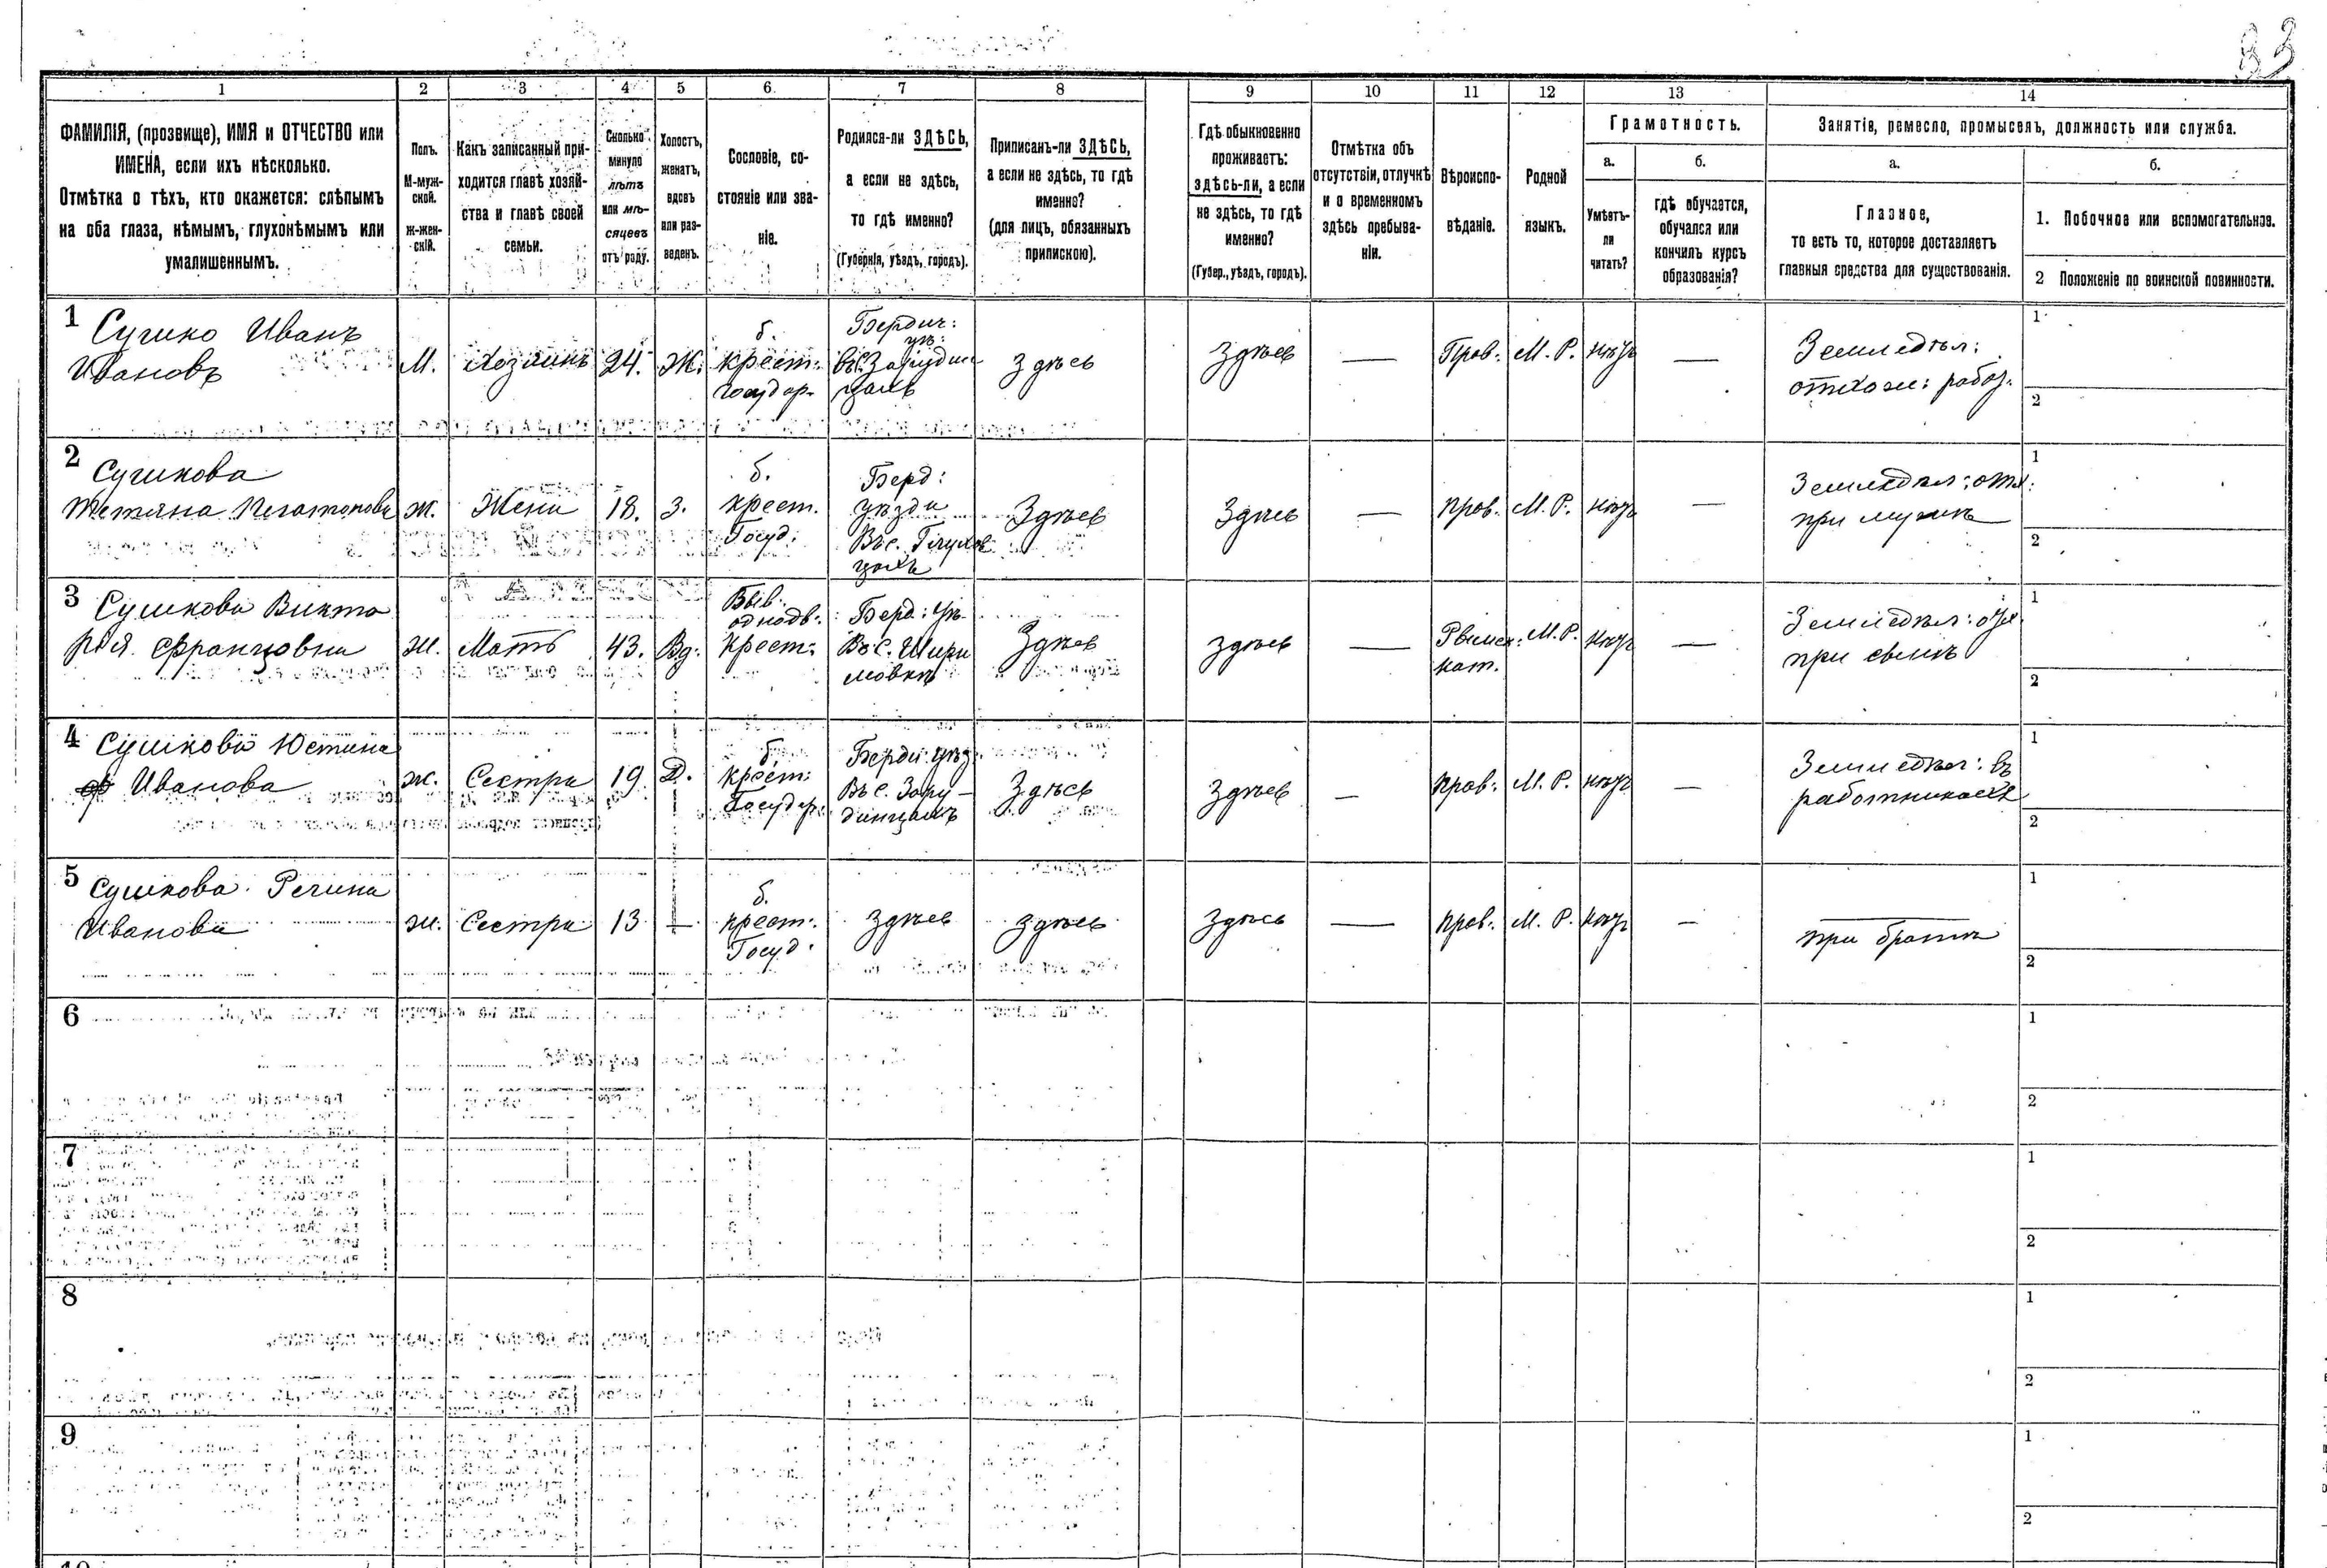 33
1
2
3
4
5
6
7
8
9
10
11
12
13
14
ФАМИЛІЯ, (прозвище), ИМЯ и ОТЧЕСТВО или
ИМЕНА, если ихъ нѣсколько.
Отмѣтка о тѣхъ, кто окажется: слѣпымъ
на оба глаза, нѣмымъ, глухонѣмымъ или
умалишеннымъ.
Полъ.
М-муж-
ской.
ж-жен-
скій.
Какъ записанный при-
ходится главѣ хозяй-
ства и главѣ своей
семьи.
Сколько
минуло
лѣтъ
или мѣ-
сяцевъ
отъ роду.
Холостъ,
женатъ,
вдовъ
или раз-
веденъ.
Сословіе, со-
стояніе или зва-
ніе.
Родился-ли ЗДѢСЬ,
а если не здѣсь,
то гдѣ именно?
(Губернія, уѣздъ, городъ).
Приписанъ-ли ЗДѢСЬ,
а если не здѣсь, то гдѣ
именно?
(для лицъ, обязанныхъ
припискою).
Гдѣ обыкновенно
проживаетъ:
здѣсь-ли, а если
не здѣсь, то гдѣ
именно?
(Губер., уѣздъ, городъ).
Отмѣтка объ
отсутствіи, отлучкѣ
и о временномъ
здѣсь пребыва-
ніи.
Вѣроиспо-
вѣданіе.
Родной
языкъ.
Грамотность.
а.
Умѣетъ-
ли
читать?
б.
гдѣ обучается,
обучался или
кончилъ курсъ
образованія?
Занятія, ремесло, промыселъ, должность или служба.
а.
Главное,
то есть то, которое доставляетъ
главныя средства для существованія.
б.
1. Побочное или вспомогательное.
2 Положеніе по воинской повинности.
1 Сушко Иванъ
Ивановъ
М.
Хозяинъ
24.
Ж.
б.
крест:
госудор.
Бердич:
уѣ:
въ с. Зарудин
цахъ
Здѣсь
Здѣсь
—
Прав:
М. Р.
нѣтъ
—
Земледѣл:
отхож: работ.
1
2
2 Сушкова
Тетяна
ж.
Жена
18.
З.
б.
крест.
Госуд:
Берд:
уѣзда
Въ с. Глухов
цахъ
Здѣсь
Здѣсь
—
прав.
М. Р.
нѣтъ
—
Земледѣл:
при мужѣ
1
2
3 Сушкова Викто
рія Францовна
ж.
Мать
43.
Вд:
Быв.
однодв:
крест:
Берд: уѣ
Въ с. Шири
мовкѣ
Здѣсь
здѣсь
—
Римск:
кат.
М. Р.
нѣтъ
—
Земледѣл:
при сынѣ
1
2
4 Сушкова Юстина
Иванова
ж.
Сестра
19
Д.
б.
крест:
Государ:
Берди: уѣз.
Въ с. Зару-
динцахъ
Здѣсь
Здѣсь
—
прав:
М. Р.
нѣтъ
—
Земледѣл: въ
работникахъ
1
2
5 Сушкова Регина
Иванова
ж.
Сестра
13
—
б.
крест:
Госуд.
здѣсь
здѣсь
Здѣсь
—
прав:
М. Р.
нѣтъ
—
при братѣ
1
2
6
1
2
7
1
2
8
1
2
9
1
2